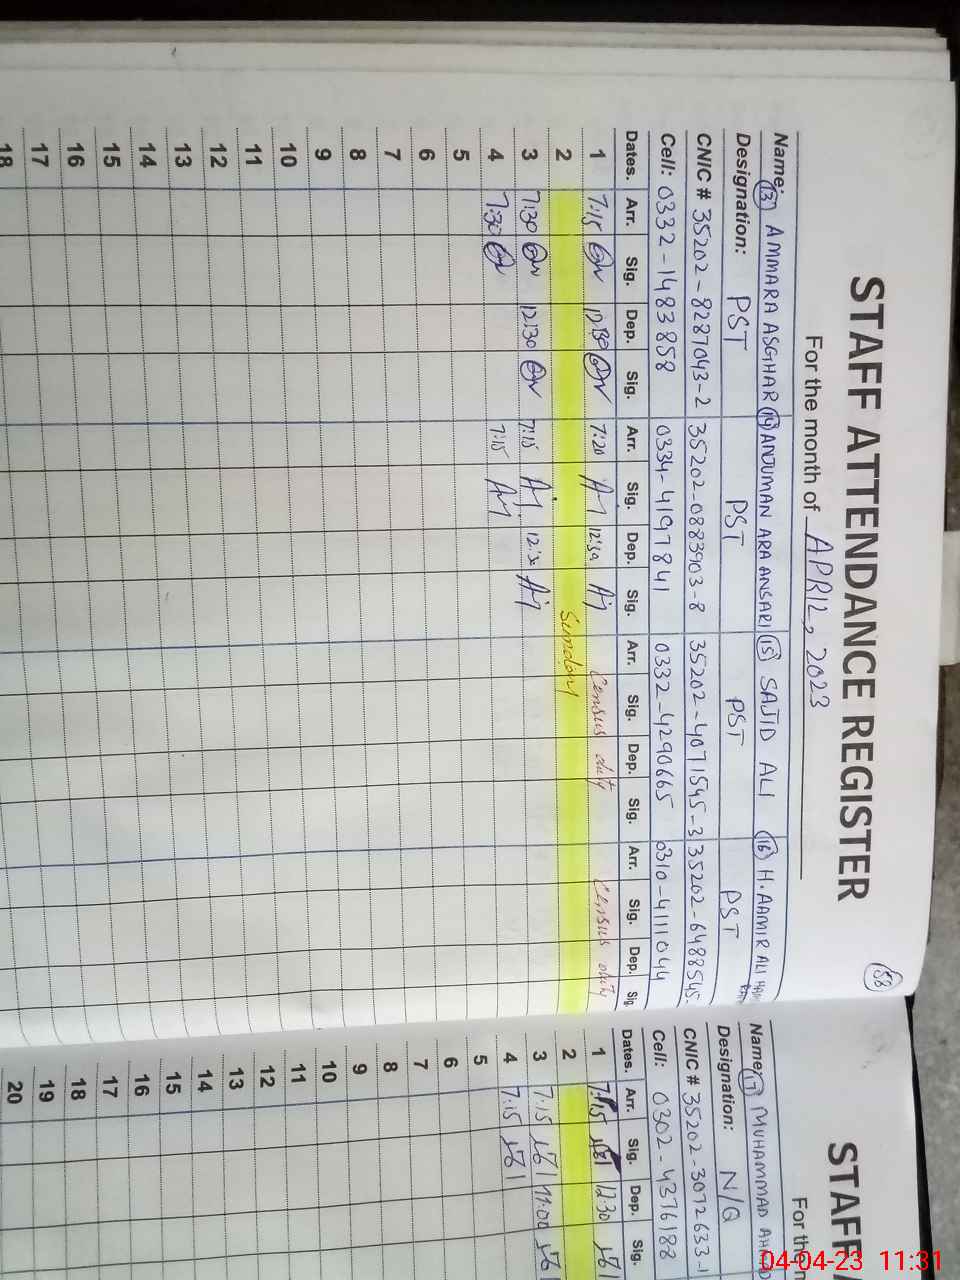 58
STAFF ATTENDANCE REGISTER
For the month of APRIL, 2023
Name: 13 AMMARA ASGHAR 14 ANJUMAN ARA ANSARI 15 SAJID ALI 16 H. AAMIR ALI
Designation: PST PST PST PST
CNIC # 35202-8287043-2 35202-0883903-8 35202-4071545-3 35202-6488545-
Cell: 0332-1483858 0334-4197841 0332-4290665 0310-4111044
Dates. Arr. Sig. Dep. Sig. Arr. Sig. Dep. Sig. Arr. Sig. Dep. Sig. Arr. Sig. Dep. Sig.
1 7:15 12:30 7:20 12:30 Census duty Census duty
2 Sunday
3 7:30 12:30 7:15 12:30
4 7:30 7:15
5
6
7
8
9
10
11
12
13
14
15
16
17
18
STAFF
For the m
Name: 17 MUHAMMAD
Designation: N/Q
CNIC # 35202-3072633-1
Cell: 0302-4376188
Dates. Arr. Sig. Dep. Sig.
1 7:15 12:30
2
3 7:15 11:00
4 7:15
5
6
7
8
9
10
11
12
13
14
15
16
17
18
19
20
04-04-23 11:31